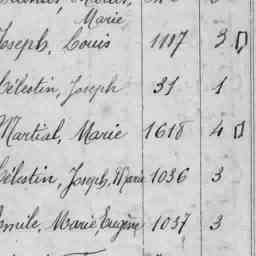 Marie
Joseph, Louis 1117 3
Célestin, Joseph 31 1
Martial, Marie 1618 4
Célestin, Joseph, Marie 1036 3
Émile, Marie Eugène 1037 3